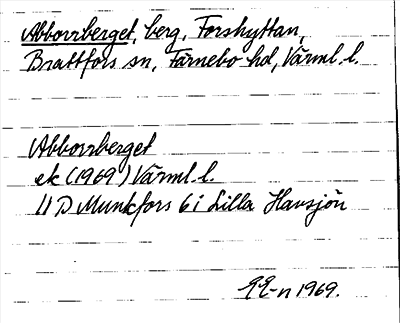 Abborrberget, berg, Forshyttan,
Brattfors sn, Färnebo hd, Värml. l.
Abborrberget
ek (1969) Värml. l.
11 D Munkfors 6 i Lilla Havsjön
1969.